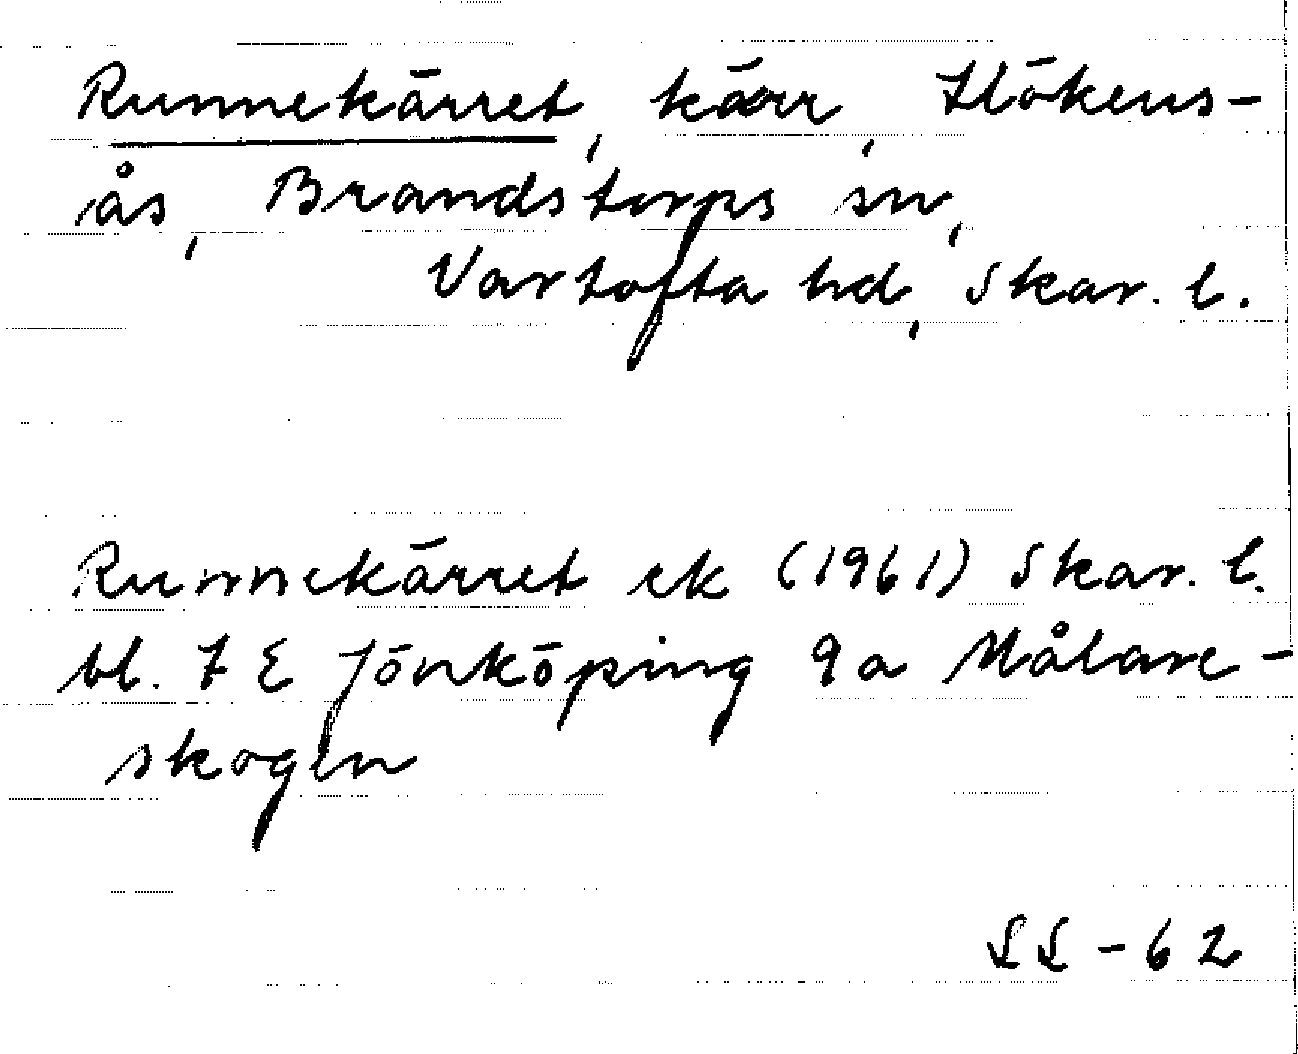 Runnekärret, kärr, Hökens-
ås, Brandstorps sn,
Vartofta hd, Skar. l.
Runnekärret ek (1961) Skar. l.
bl. 7 E Jönköping 9a Målare-
skogen
LL-62